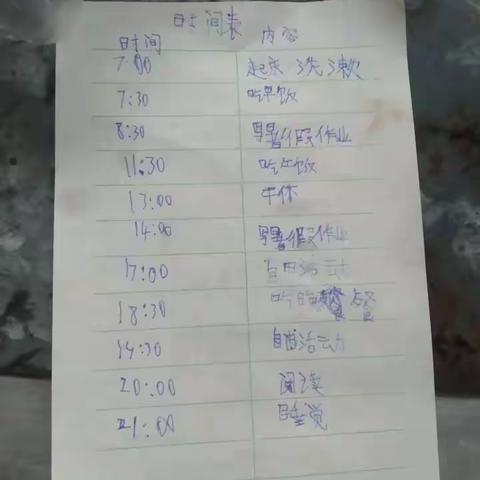 时间表
时间 内容
7:00 起床 洗漱
7:30 吃早饭
8:30 暑假作业
11:30 吃午饭
13:00 午休
14:00 暑假作业
17:00 自由活动
18:30 吃晚餐
19:30 自由活动
20:00 阅读
21:00 睡觉